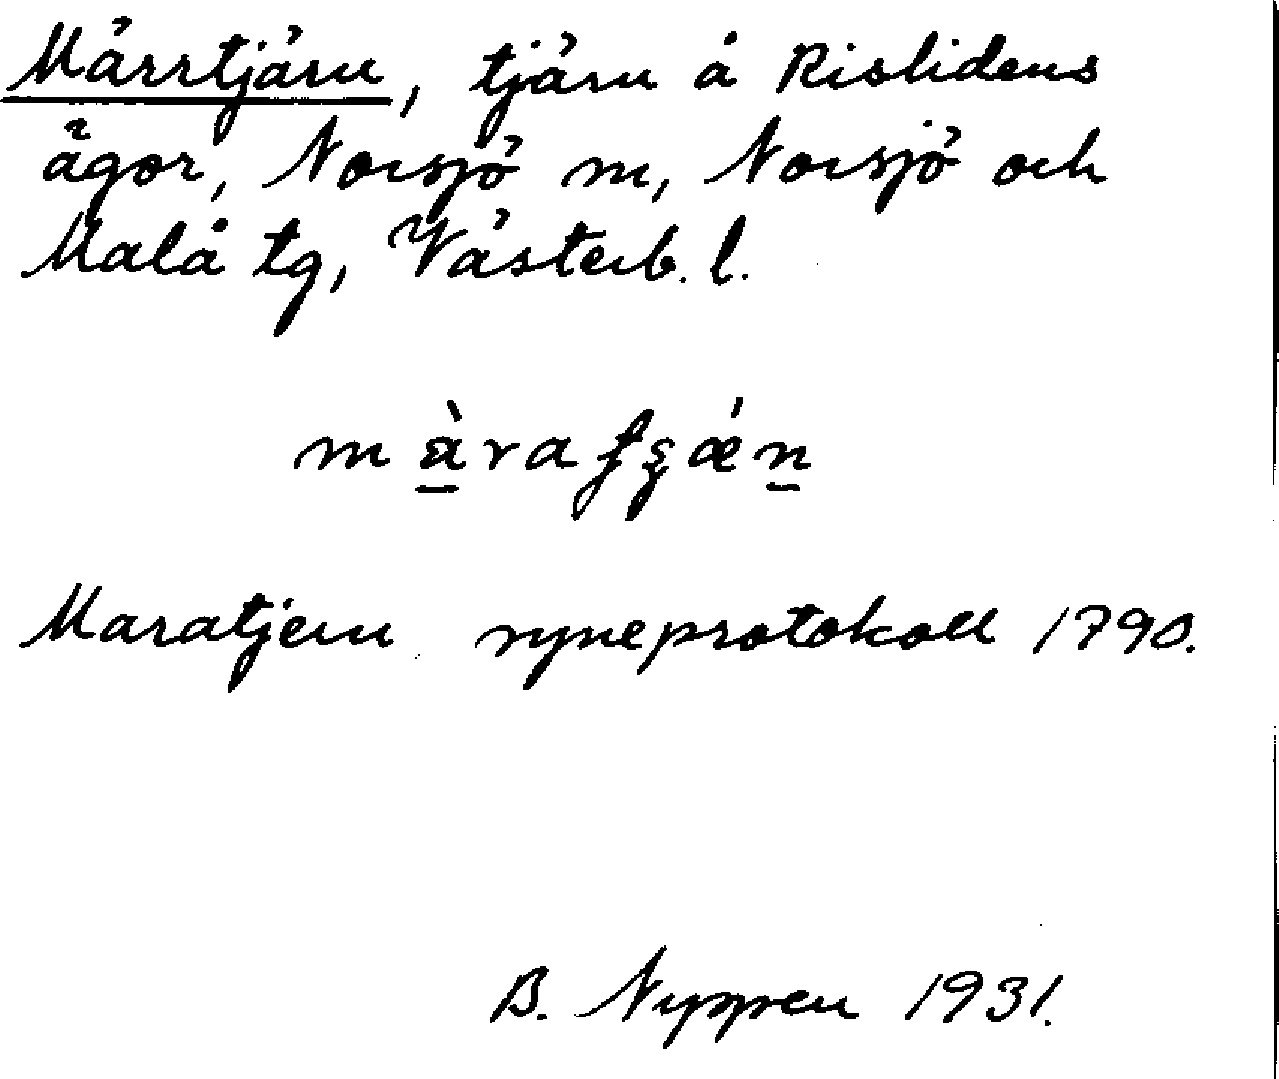 Märrtjärn, tjärn å Rislidens
ägor, Norsjö sn, Norsjö och
Malå tg, Västerb. l.
Maratjern syneprotokoll 1790.
B. Nyppen 1931.